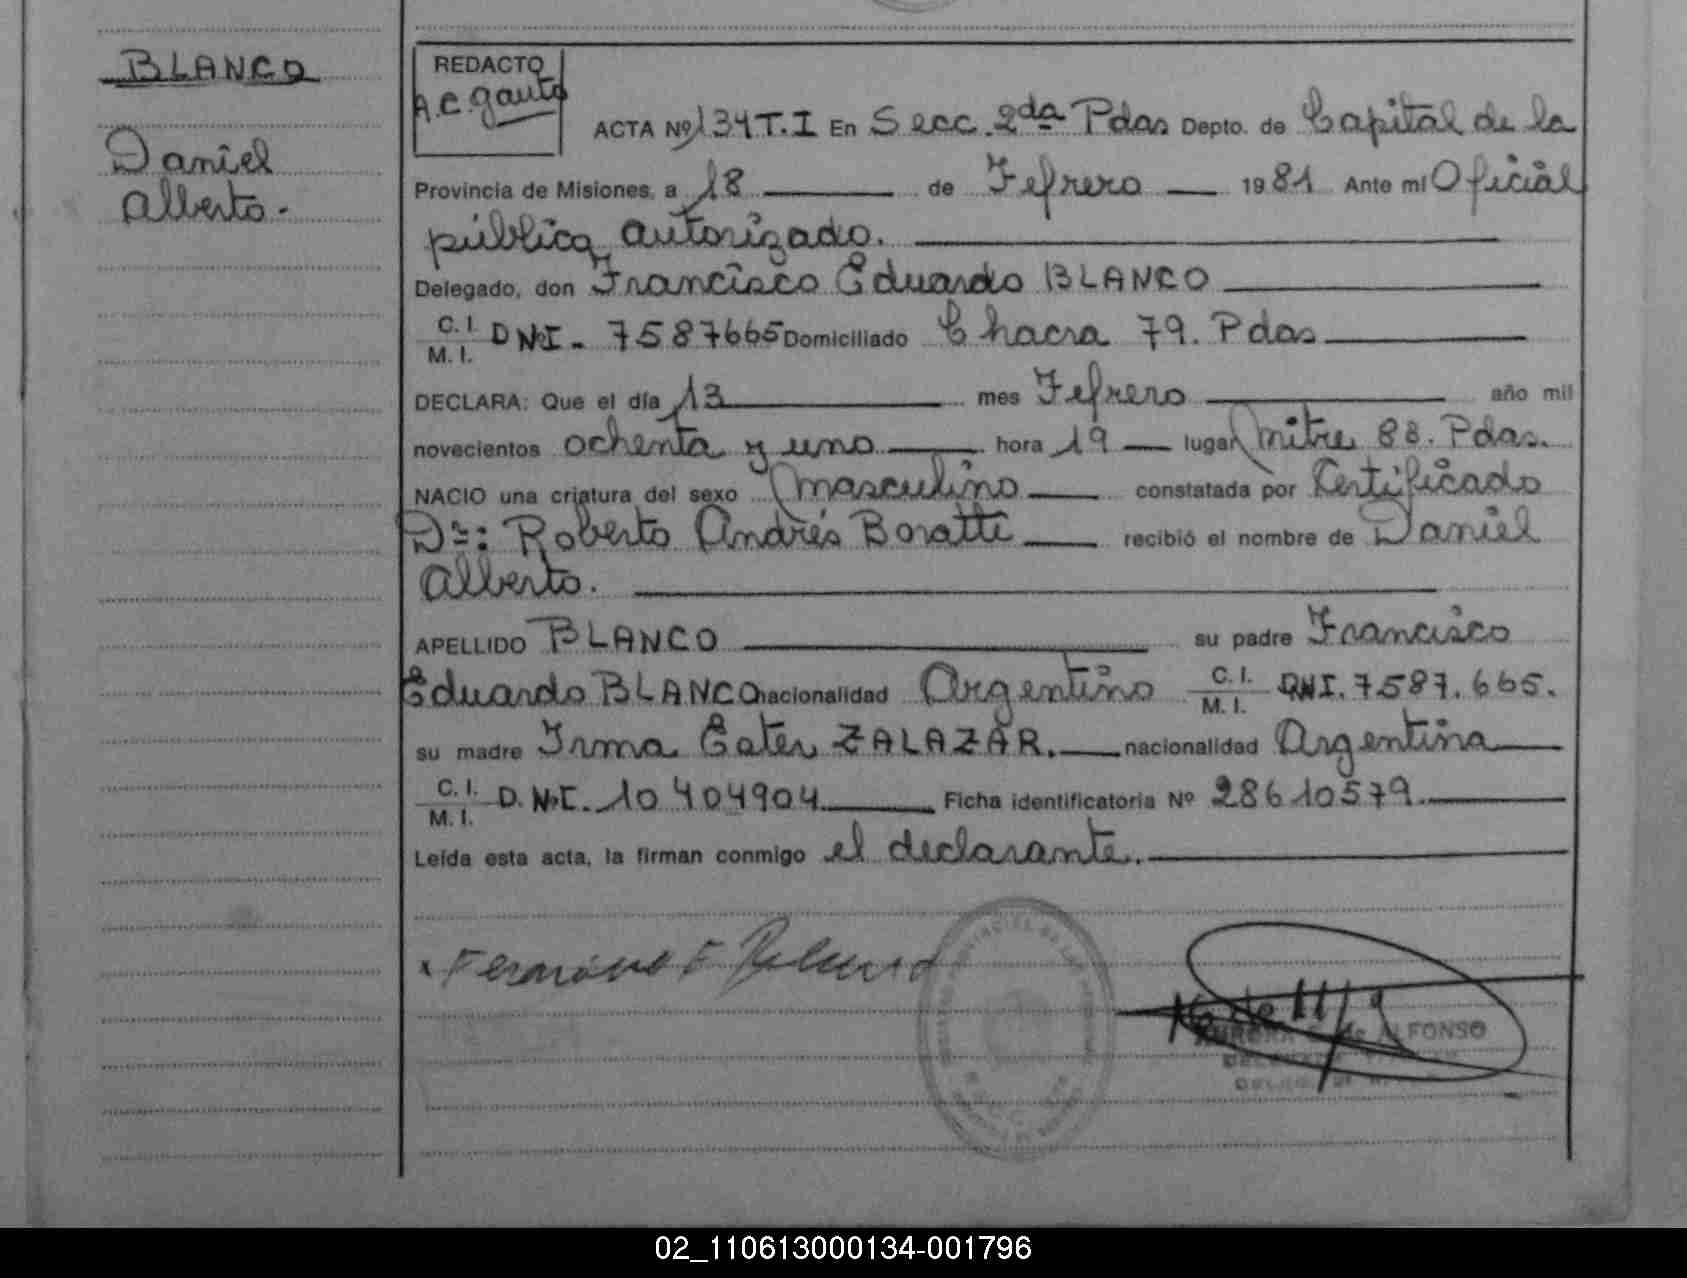 BLANCO
Daniel
Alberto.-
REDACTO
A.C. Gauto
ACTA Nº 134 T.I En Secc. 2da Pdas Depto. de Capital de la
Provincia de Misiones, a 18 de Fefrero 1981 Ante mi Oficial
público autorizado.
Delegado, don Francisco Eduardo BLANCO
C. I.
M. I.
DNI- 7587665 Domiciliado Chacra 79. Pdas
DECLARA: Que el día 13 mes Fefrero año mil
novecientos ochenta y uno hora 19 lugar Mitre 88. Pdas.
NACIO una criatura del sexo Masculino constatada por Certificado
Dr: Roberto Andrés Boratti recibió el nombre de Daniel
Alberto.
APELLIDO BLANCO su padre Francisco
Eduardo BLANCO nacionalidad Argentino C. I.
M. I.
DNI. 7587.665.
su madre Irma Ester ZALAZAR. nacionalidad Argentina
C. I.
M. I.
D.N.I. 10404904 Ficha identificatoria Nº 28610579.
Leída esta acta, la firman conmigo el declarante.
de ALFONSO
02_110613000134-001796